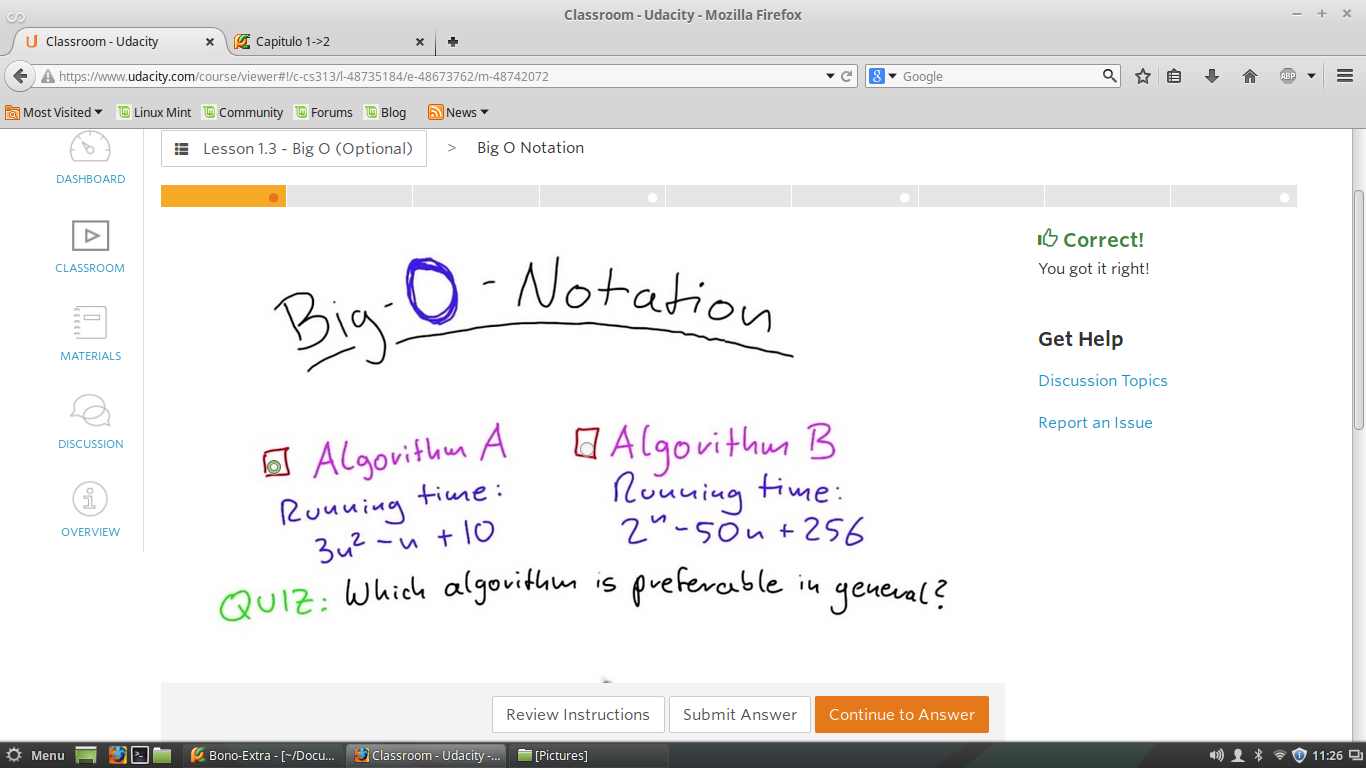 Classroom - Udacity - Mozilla Firefox
Classroom - Udacity
Capitulo 1->2
https://www.udacity.com/course/viewer#!/c-cs313/l-48735184/e-48673762/m-48742072
Google
ABP
Most Visited
Linux Mint
Community
Forums
Blog
News
DASHBOARD
CLASSROOM
MATERIALS
DISCUSSION
OVERVIEW
Lesson 1.3 - Big O (Optional) > Big O Notation
Big-O-Notation
Algorithm A
Running time:
3n² - n + 10
Algorithm B
Running time:
2ⁿ - 50n + 256
QUIZ: Which algorithm is preferable in general?
Correct!
You got it right!
Get Help
Discussion Topics
Report an Issue
Review Instructions
Submit Answer
Continue to Answer
Menu
Bono-Extra - [~/Docu...
Classroom - Udacity -...
[Pictures]
11:26